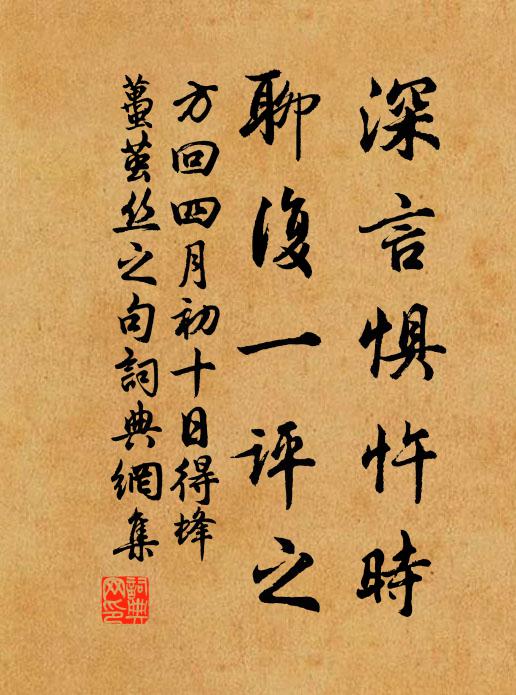 深言惧忤時
聊復一評之
方回四月初十日得蜂
薑蚕丝之句詞典網集
詞典網印